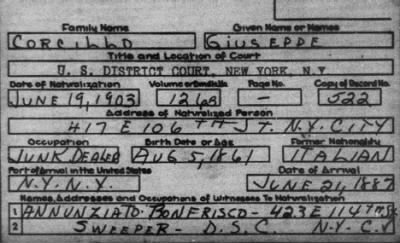 Family Name Given Name or Names
CORCILLO GIUSEPPE
Title and Location of Court
U. S. DISTRICT COURT, NEW YORK, N.Y.
Date of Naturalization Volume or Bundle No. Page No. Copy of Record No.
JUNE 19, 1903 1268 — 522
Address of Naturalized Person
417 E 106TH ST. N.Y. CITY
Occupation Birth Date or Age Former Nationality
JUNK DEALER AUG 5, 1861 ITALIAN
Port of Arrival in the United States Date of Arrival
N.Y. N.Y. JUNE 21, 1887
Names, Addresses and Occupations of Witnesses To Naturalization
1 ANNUNZIATO BONFRISCO - 423 E 114TH ST.
2 SWEEPER - D.S.C. N.Y.C.